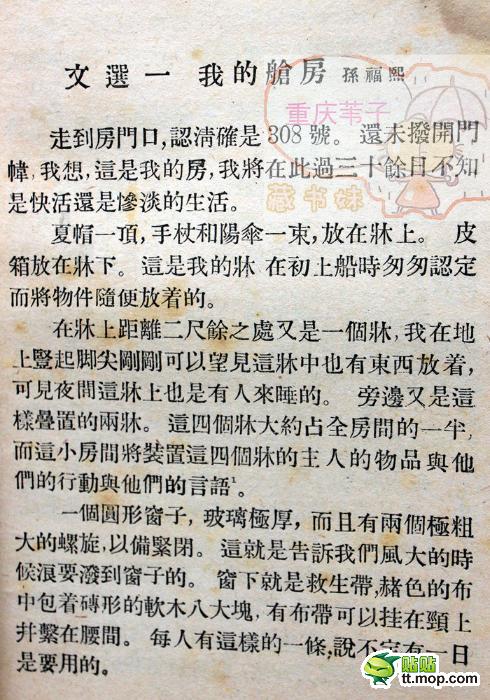 文選一 我的艙房 孫福熙
走到房門口,認淸確是 308 號。 還未撥開門
幃,我想,這是我的房,我將在此過三十餘日不知
是快活還是慘淡的生活。
夏帽一頂,手杖和陽傘一束,放在牀上。 皮
箱放在牀下。 這是我的牀 在初上船時匆匆認定
而將物件隨便放着的。
在牀上距離二尺餘之處又是一個牀,我在地
上豎起脚尖剛剛可以望見這牀中也有東西放着,
可見夜間這牀上也是有人來睡的。 旁邊又是這
樣疊置的兩牀。 這四個牀大約占全房間的一半,
而這小房間將裝置這四個牀的主人的物品與他
們的行動與他們的言語¹。
一個圓形窗子, 玻璃極厚, 而且有兩個極粗
大的螺旋,以備緊閉。 這就是告訴我們風大的時
候浪要潑到窗子的。 窗下就是救生帶,赭色的布
中包着磚形的軟木八大塊,有布帶可以挂在頸上
幷繫在腰間。 每人有這樣的一條,說不定有一日
是要用的。
重庆苇子
藏书妹
貼貼
tt.mop.com